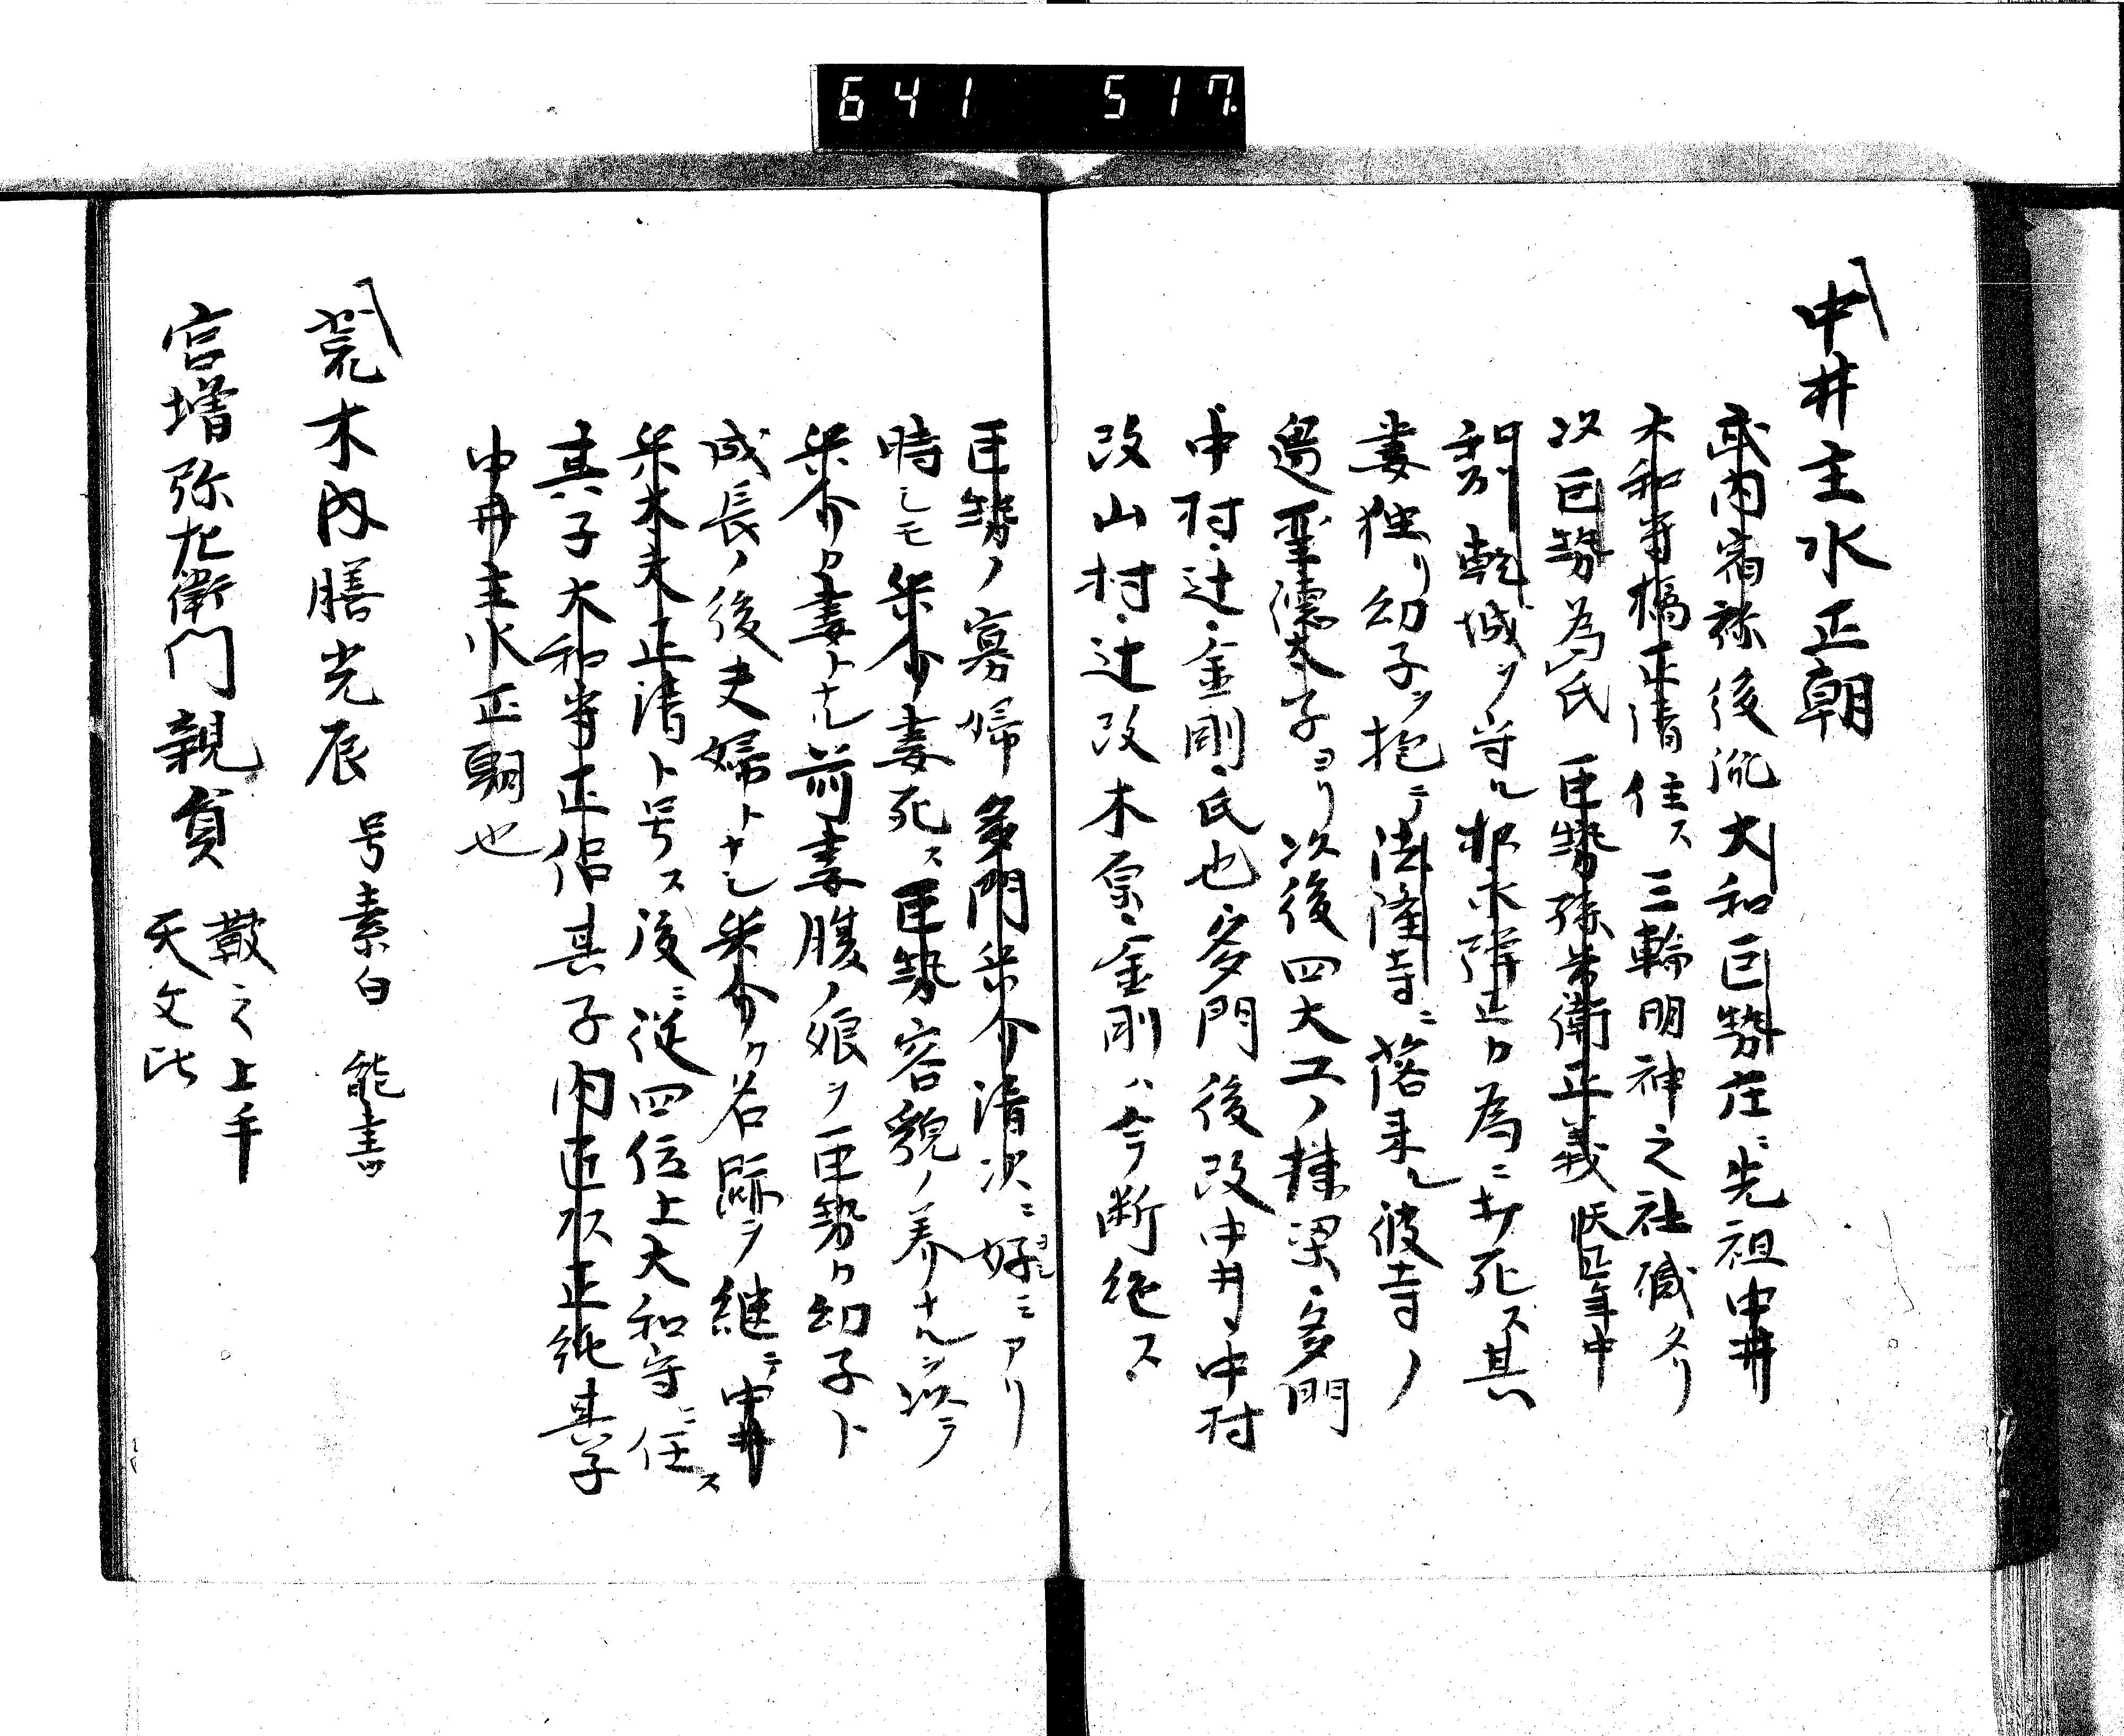 641 517
中井主水正朝
武内宿祢後流大和巨勢庄ニ先祖中井
大和守橘正清住ス三輪明神之社職タリ
次巨勢為氏巨勢孫兵衛正義天正年中
和刕乾城ヲ守ル松永弾正カ為ニ打死ス其
妻独リ幼子ヲ抱テ法隆寺ニ落来ル彼寺ノ
邉聖徳太子ヨリ次後四大工ノ棟梁多門
中村辻金剛氏也多門後改中井中村
改山村辻改木原金剛ハ今断絶ス
巨勢ノ寡婦多門米介清次ニ好ミアリ
時シモ米介妻死ス巨勢容貌ノ美ナルヲ以テ
米介カ妻トナル前妻腹ノ娘ヲ巨勢カ幼子ト
成長ノ後夫婦トナシ米介カ名跡ヲ継テ中井
米太夫正清ト号ス後ニ従四位上大和守ニ任ス
其子大和守正侶其子内匠次正純其子
中井主水正朝也
荒木内膳光辰 号素白 能書
宮増弥左衛門親負 鼓之上手
天文比